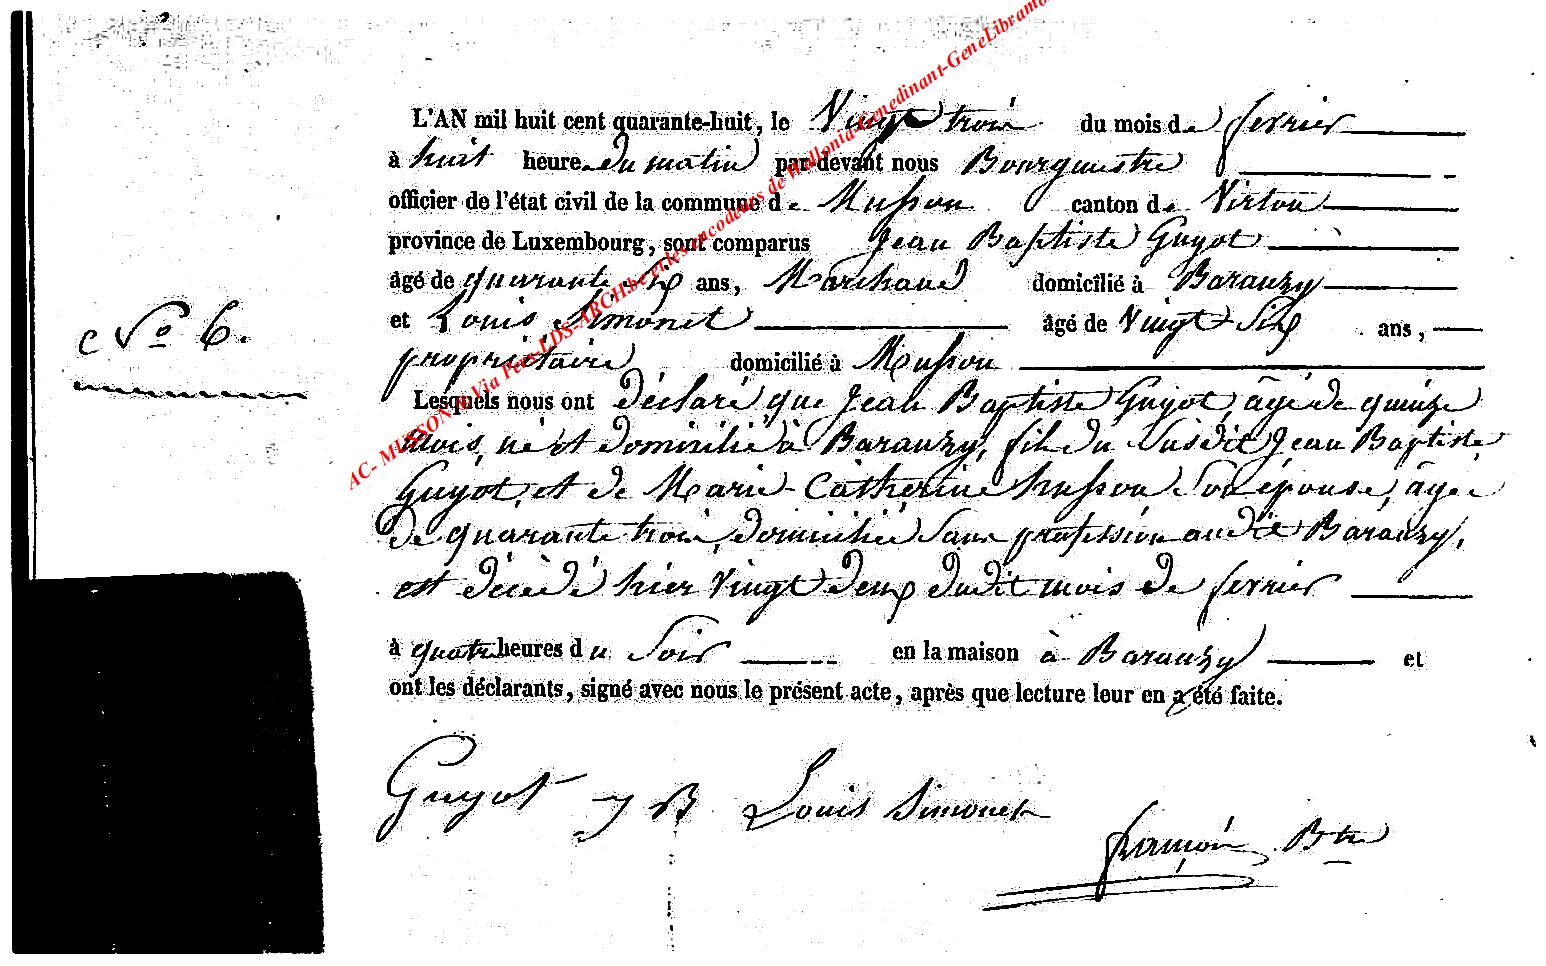 L'AN mil huit cent quarante-huit, le Vingt trois du mois de fevrier
à huit heures du matin par devant nous Bourgmestre
officier de l'état civil de la commune de Musson canton de Virton
province de Luxembourg, sont comparus Jean Baptiste Guyot
âgé de quarante six ans, Marchand domicilié à Baranzy
et Louis Simonet âgé de Vingt-Six ans,
No 6.
propriétaire domicilié à Musson
Lesquels nous ont déclaré que Jean Baptiste Guyot, âgé de quinze
mois, né et domicilié à Baranzy, fils du Susdit Jean Baptiste
Guyot, et de Marie-Catherine husson Son épouse, âgée
de quarante trois, domiciliée Sans profession audit Baranzy,
est décédé hier Vingt deux dudit mois de fevrier
à quatre heures du Soir en la maison à Baranzy et
ont les déclarants, signé avec nous le présent acte, après que lecture leur en a été faite.
Guyot J B Louis Simonet
françois Btre
AC- MUSSON - Via Pers-LDS-ARCH.be et les encodeurs de Wallonia-Genedinant-GeneLibramo